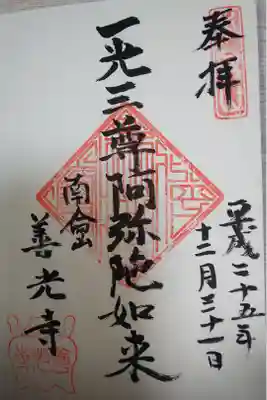 奉拝
平成二十五年
十二月三十一日
一光三尊阿弥陀如来
南會
善光寺